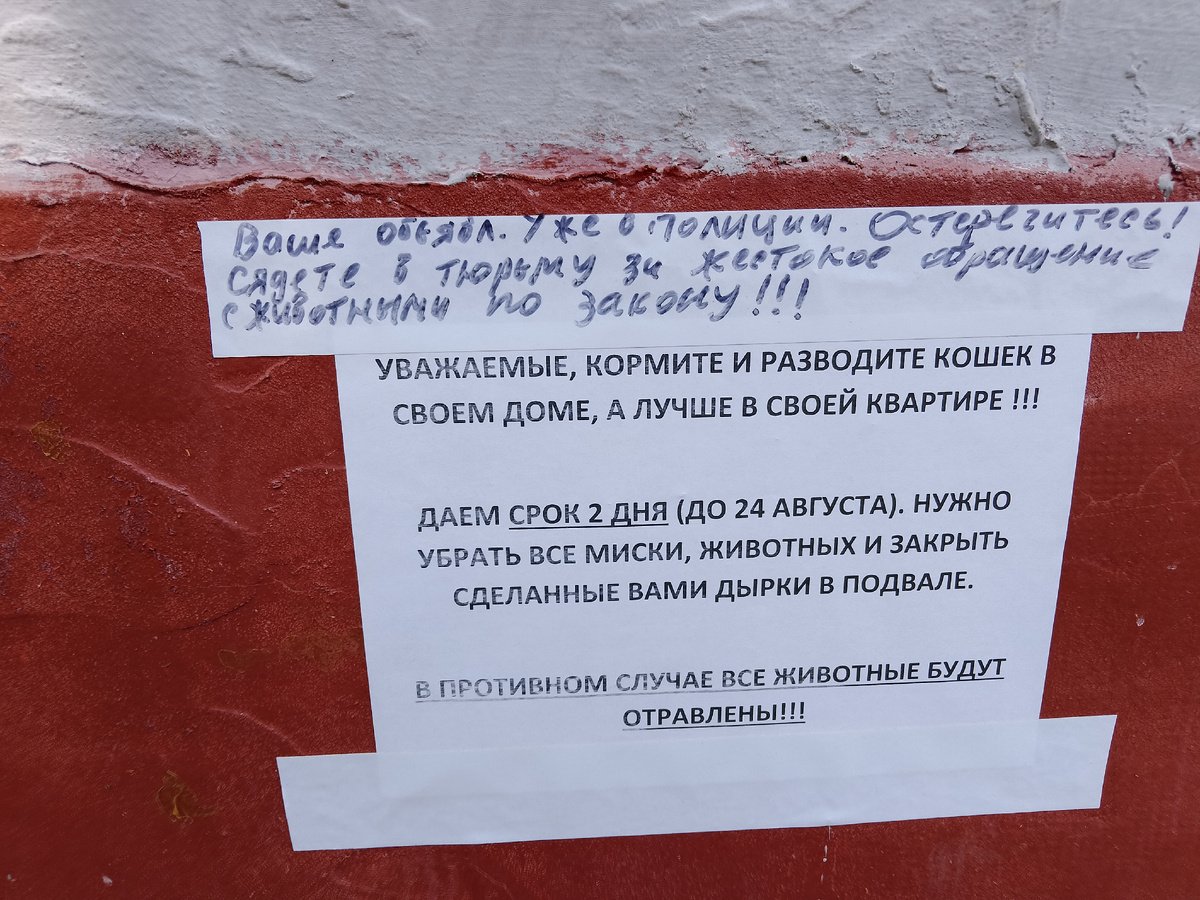 Ваше объявл. Уже в полиции. Остерегитесь!
Сядете в тюрьму за жестокое обращение
с животными по закону!!!
УВАЖАЕМЫЕ, КОРМИТЕ И РАЗВОДИТЕ КОШЕК В
СВОЕМ ДОМЕ, А ЛУЧШЕ В СВОЕЙ КВАРТИРЕ !!!
ДАЕМ СРОК 2 ДНЯ (ДО 24 АВГУСТА). НУЖНО
УБРАТЬ ВСЕ МИСКИ, ЖИВОТНЫХ И ЗАКРЫТЬ
СДЕЛАННЫЕ ВАМИ ДЫРКИ В ПОДВАЛЕ.
В ПРОТИВНОМ СЛУЧАЕ ВСЕ ЖИВОТНЫЕ БУДУТ
ОТРАВЛЕНЫ!!!